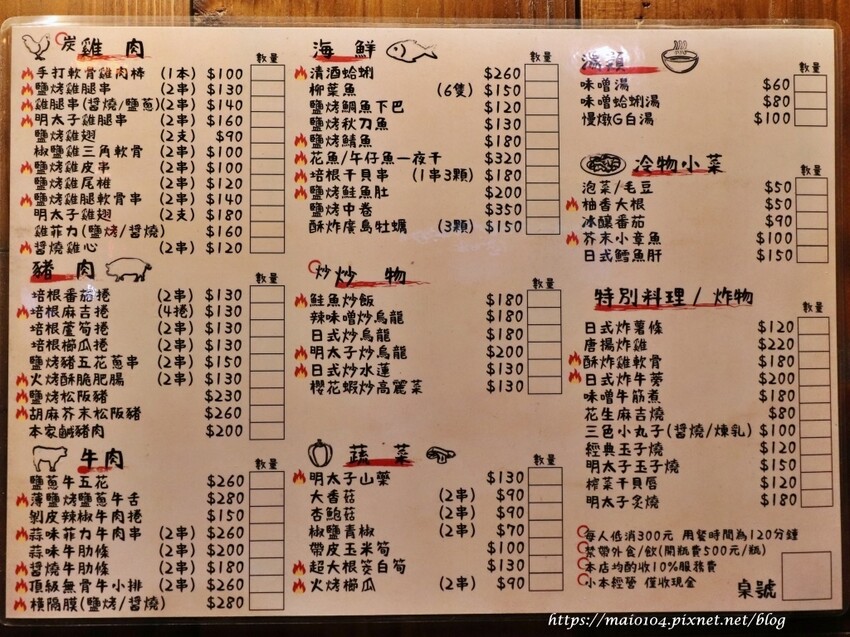 炭 雞肉 數量
手打軟骨雞肉棒 (1本) $100
鹽烤雞腿串 (2串) $130
雞腿串(醬燒/鹽蔥)(2串) $140
明太子雞腿串 (2串) $160
鹽烤雞翅 (2支) $90
椒鹽雞三角軟骨 (2串) $100
鹽烤雞皮串 (2串) $100
鹽烤雞尾椎 (2串) $120
鹽烤雞腿軟骨串 (2串) $140
明太子雞翅 (2支) $180
雞菲力(鹽烤/醬燒) $160
醬燒雞心 (2串) $120
豬肉 數量
培根番茄捲 (2串) $130
培根麻吉捲 (4捲) $130
培根蘆筍捲 (2串) $130
培根櫛瓜捲 (2串) $130
鹽烤豬五花蔥串 (2串) $150
火烤酥脆肥腸 (2串) $130
鹽烤松阪豬 $230
胡麻芥末松阪豬 $260
本家鹹豬肉 $200
牛肉 數量
鹽蔥牛五花 $260
薄鹽烤鹽蔥牛舌 $280
剝皮辣椒牛肉捲 $150
蒜味菲力牛肉串 (2串) $260
蒜味牛肋條 (2串) $200
醬燒牛肋條 (2串) $180
頂級無骨牛小排 (2串) $260
橫隔膜(鹽烤/醬燒) $280
海鮮 數量
清酒蛤蜊 $260
柳葉魚 (6隻) $150
鹽烤鯛魚下巴 $120
鹽烤秋刀魚 $130
鹽烤鯖魚 $180
花魚/午仔魚一夜干 $320
培根干貝串 (1串3顆) $180
鹽烤鮭魚肚 $200
鹽烤中卷 $350
酥炸廣島牡蠣 (3顆) $150
炒 炒物 數量
鮭魚炒飯 $180
辣味噌炒烏龍 $180
日式炒烏龍 $180
明太子炒烏龍 $200
日式炒水蓮 $130
櫻花蝦炒高麗菜 $130
蔬菜 數量
明太子山藥 $130
大香菇 (2串) $90
杏鮑菇 (2串) $90
椒鹽青椒 (2串) $70
帶皮玉米筍 $100
超大根筊白筍 $130
火烤櫛瓜 (2串) $90
湯類 數量
味噌湯 $60
味噌蛤蜊湯 $80
慢燉G白湯 $100
冷物小菜 數量
泡菜/毛豆 $50
柚香大根 $50
冰釀番茄 $90
芥末小章魚 $100
日式鱈魚肝 $150
特別料理/炸物 數量
日式炸薯條 $120
唐揚炸雞 $220
酥炸雞軟骨 $180
日式炸牛蒡 $200
味噌牛筋煮 $180
花生麻吉燒 $80
三色小丸子(醬燒/煉乳) $100
經典玉子燒 $120
明太子玉子燒 $150
榨菜干貝唇 $120
明太子炙燒 $180
每人低消300元 用餐時間為120分鐘
禁帶外食/飲(開瓶費500元/瓶)
本店均酌收10%服務費
小本經營 僅收現金
桌號
https://maio104.pixnet.net/blog